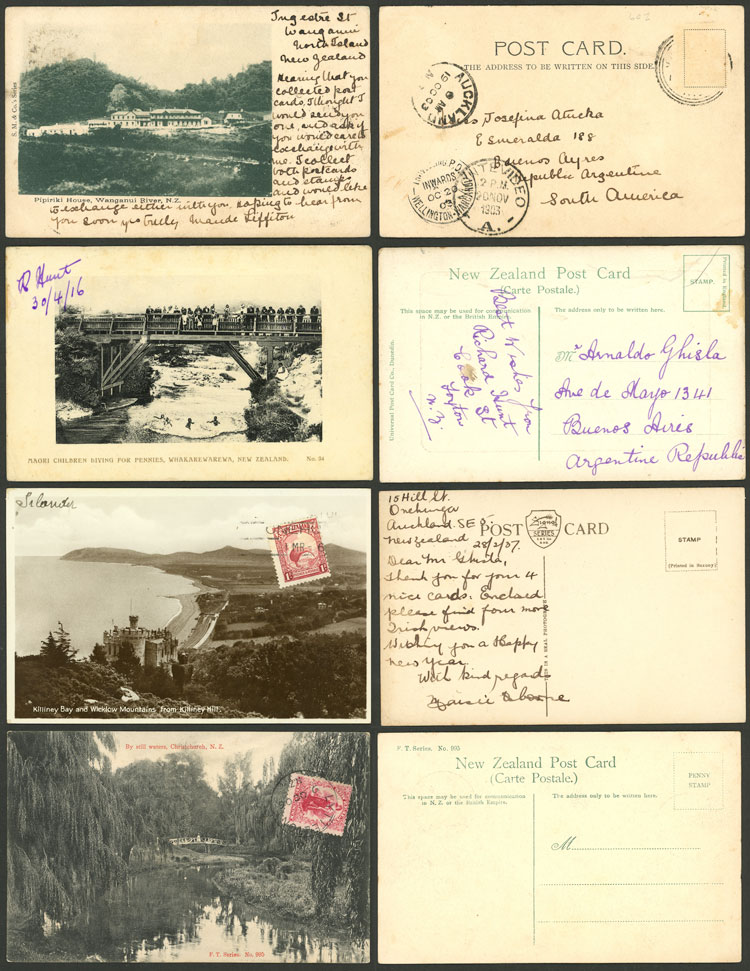 Ingestre St
Wanganui
North Island
New Zealand
Hearing that you
collected post
cards, I thought I
would send you
one, and ask if
you would care to
exchange with
me. I collect
both postcards
and stamps
and would like
to exchange either with you, hoping to hear from
you soon yrs truly Maude
S. M. & Co.'s Series
Pipiriki House, Wanganui River, N.Z.
POST CARD.
THE ADDRESS TO BE WRITTEN ON THIS SIDE.
AUCKLAND
19 OC 03
Josefina Atucha
Esmeralda 188
Buenos Ayres
Republic Argentine
South America
INWARDS
OC 20
03
WELLINGTON
MONTEVIDEO
2 P.M.
20 NOV
1903
A.
R Hunt
30/4/16
MAORI CHILDREN DIVING FOR PENNIES, WHAKAREWAREWA, NEW ZEALAND. No. 34
New Zealand Post Card
(Carte Postale.)
STAMP
Printed in
This space may be used for communication
in N.Z. or the British Empire.
The address only to be written here.
Universal Post Card Co., Dunedin.
Best Wishes from
Richard Hunt
Cook St
Foxton
N.Z.
Mr Arnaldo Ghisla
Ave de Mayo 1341
Buenos Aires
Argentine Republic
Killiney Bay and Wicklow Mountains from Killiney Hill.
15 Hill St.
Onehunga
Auckland. SE 5.
New Zealand
28/2/37.
POST CARD
SIGNAL
SERIES
STAMP
(Printed in Saxony)
THIS IS A REAL PHOTOGRAPH
Dear Mr Ghisla,
Thank you for your 4
nice cards. Enclosed
please find four more
Irish views.
Wishing you a Happy
New Year
With kind regards
By still waters, Christchurch, N. Z.
F. T. Series. No. 995
F. T. Series. No. 995
New Zealand Post Card
(Carte Postale.)
PENNY
STAMP
This space may be used for communication
in N.Z. or the British Empire.
The address only to be written here.
M